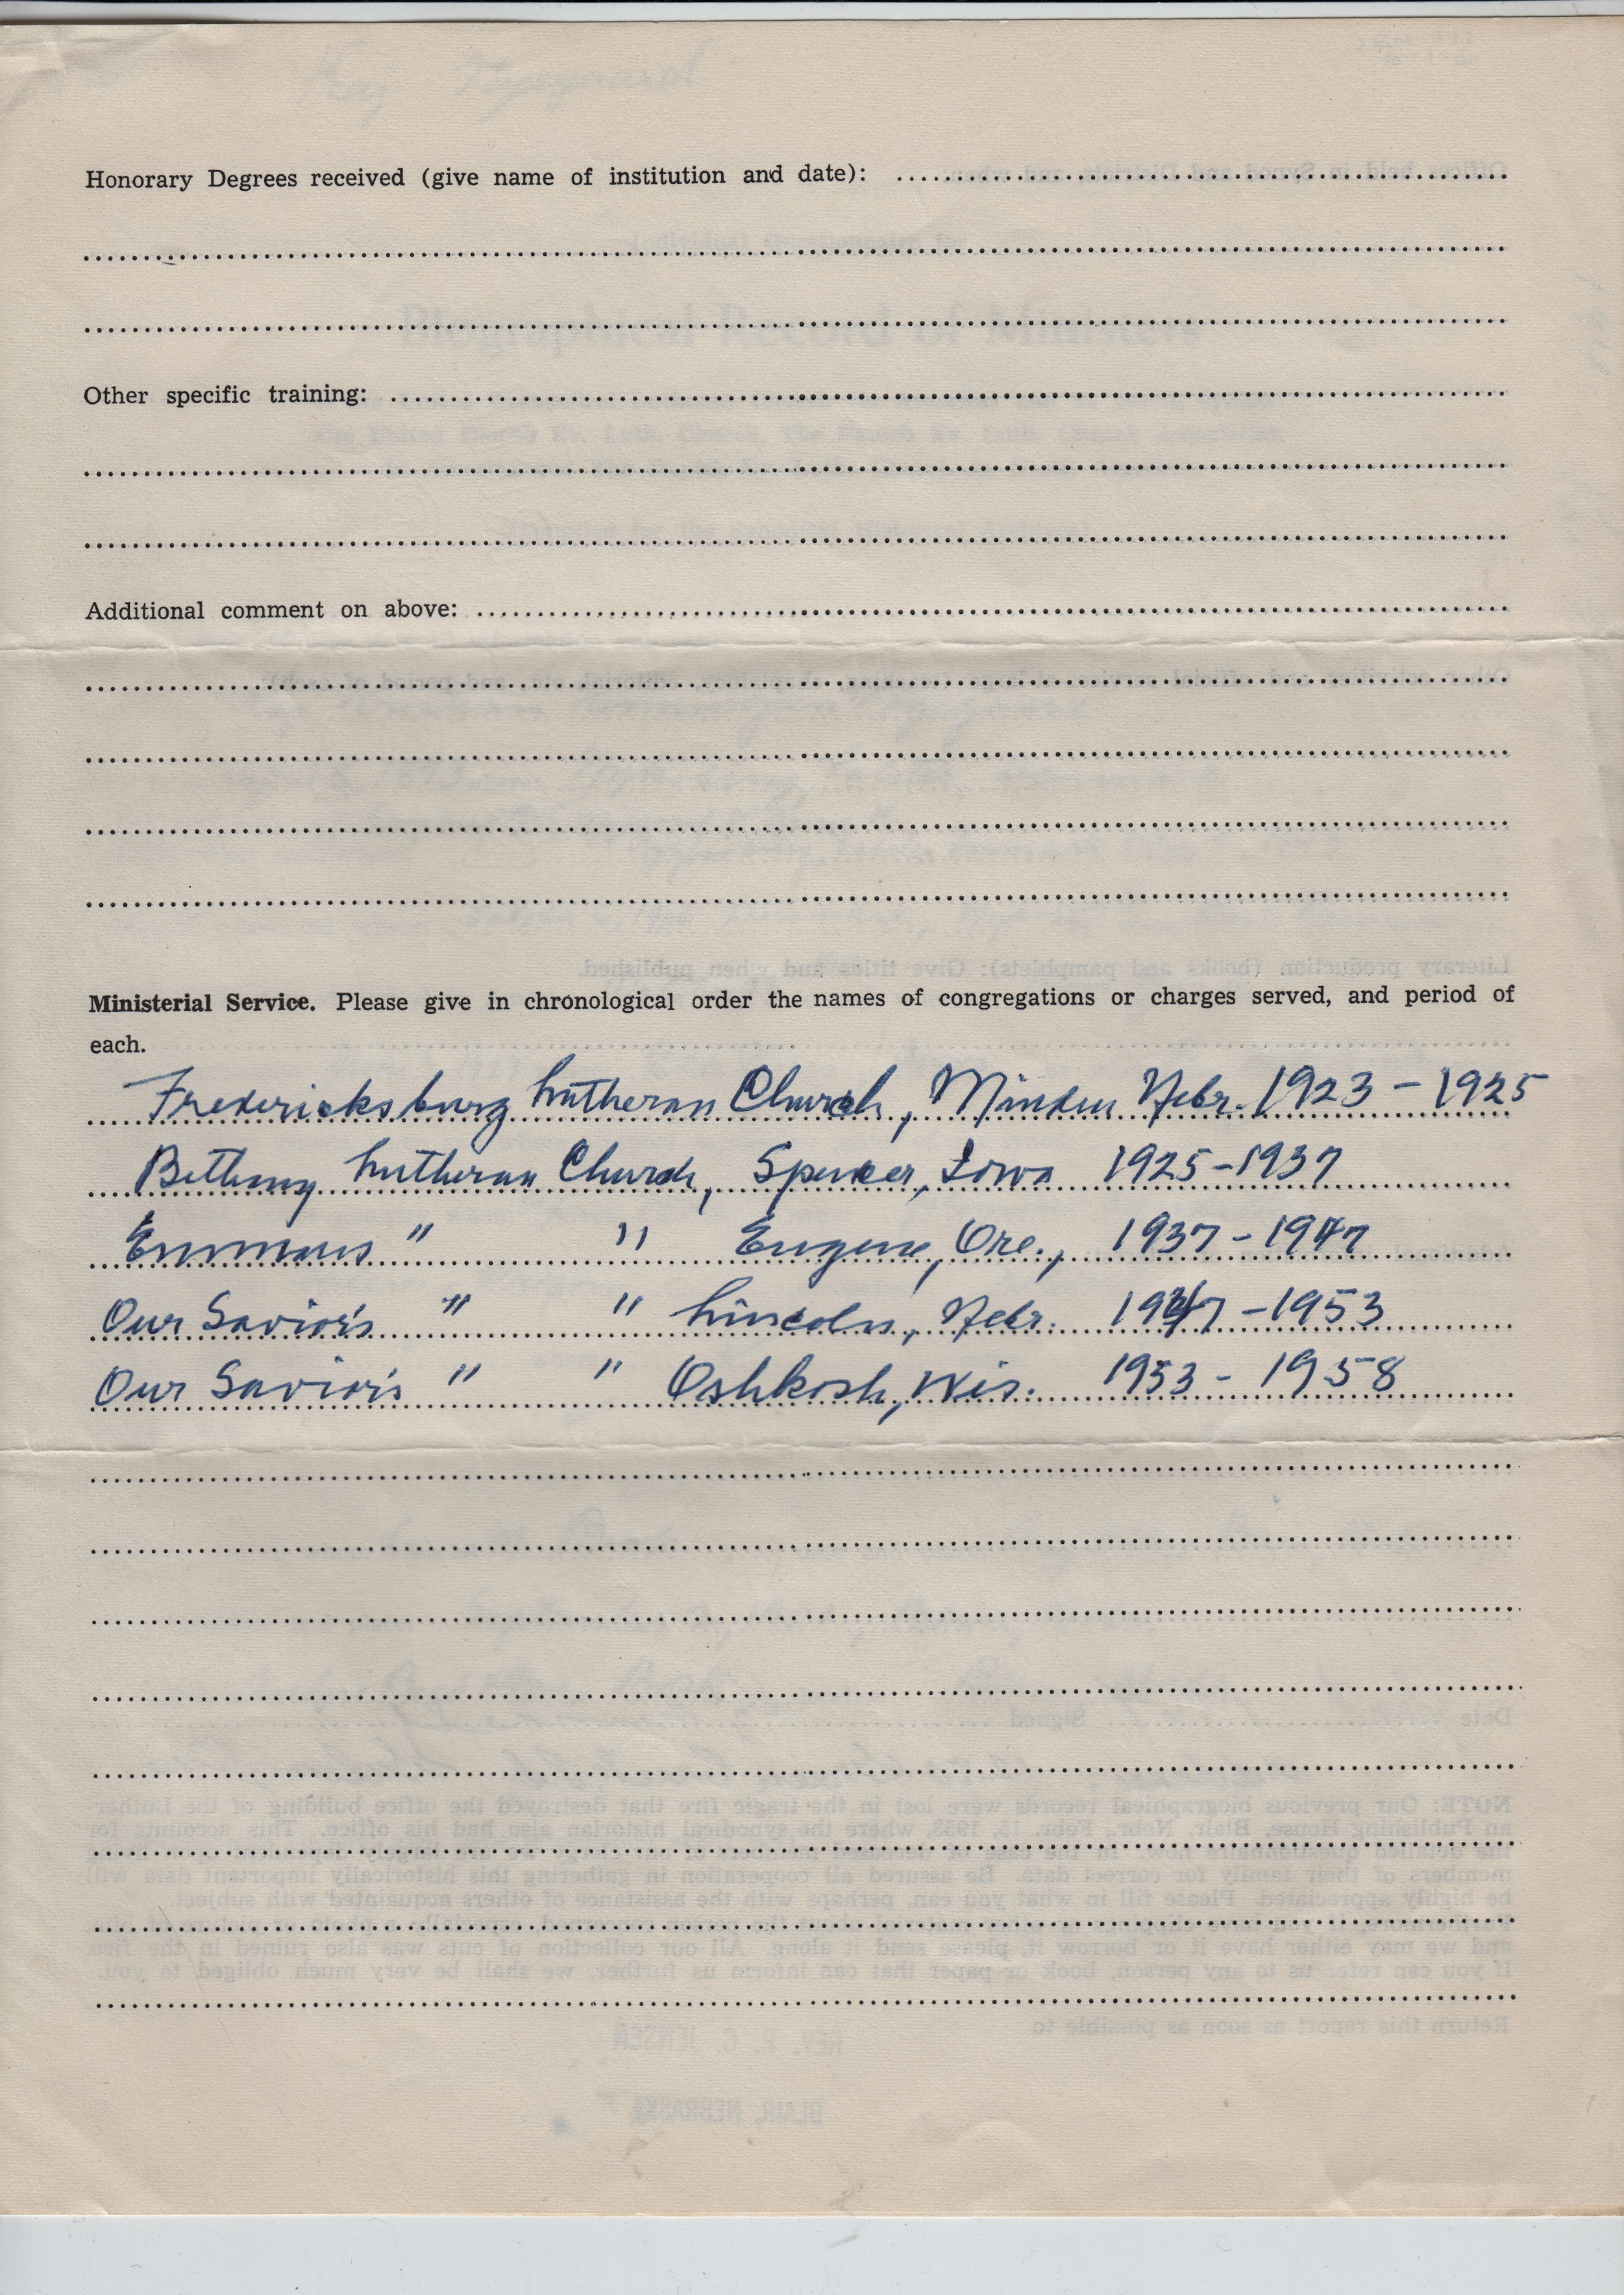 Honorary Degrees received (give name of institution and date):
Other specific training:
Additional comment on above:
Ministerial Service. Please give in chronological order the names of congregations or charges served, and period of
each.
Fredericksburg Lutheran Church, Minden Nebr. 1923 - 1925
Bethany Lutheran Church, Spencer, Iowa 1925 - 1937
Emmaus " " Eugene, Ore., 1937 - 1947
Our Savior's " " Lincoln, Nebr. 1947 - 1953
Our Savior's " " Oshkosh, Wis. 1953 - 1958